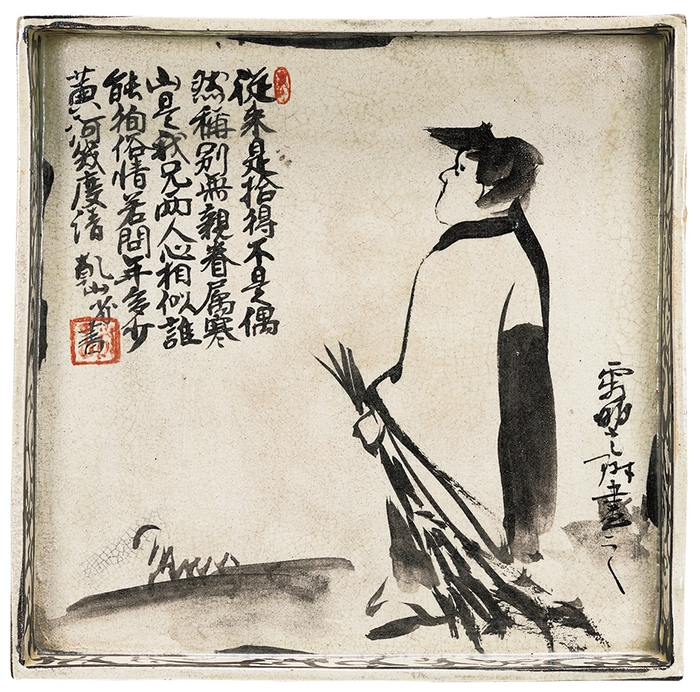 從来是拾得不是偶
然稱別無親眷属寒
山是我兄两人心相似誰
能徇俗情若問年多少
黄河幾度清 乾山省書
寂明光琳畫之